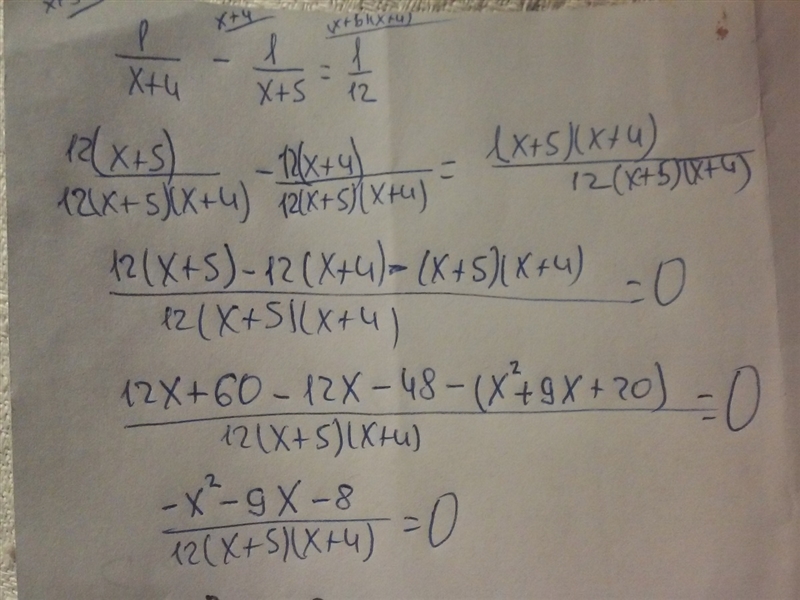 x+4 (x+5)(x+4)
1/(x+4) - 1/(x+5) = 1/12
12(x+5)/12(x+5)(x+4) - 12(x+4)/12(x+5)(x+4) = 1(x+5)(x+4)/12(x+5)(x+4)
12(x+5)-12(x+4)-(x+5)(x+4)/12(x+5)(x+4) = 0
12x+60-12x-48-(x²+9x+20)/12(x+5)(x+4) = 0
-x²-9x-8/12(x+5)(x+4) = 0